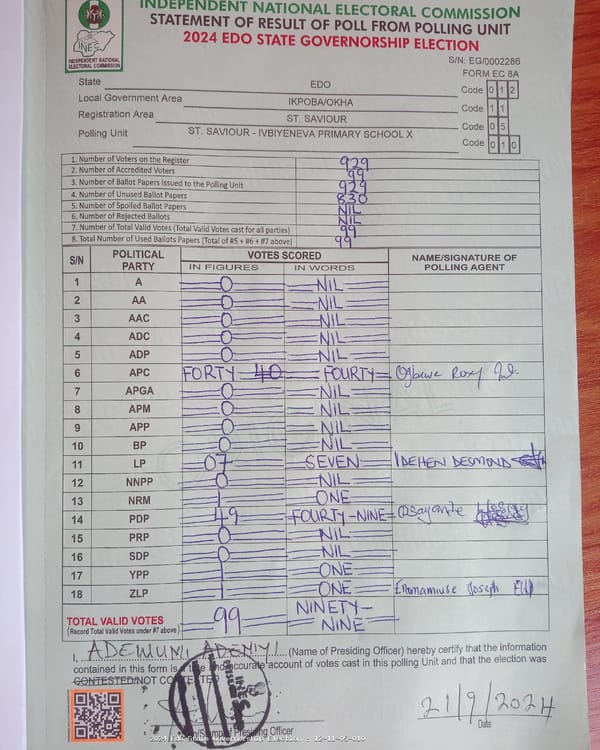 INDEPENDENT NATIONAL ELECTORAL COMMISSION
STATEMENT OF RESULT OF POLL FROM POLLING UNIT
2024 EDO STATE GOVERNORSHIP ELECTION
INEC
INDEPENDENT NATIONAL
ELECTORAL COMMISSION
S/N: EG/0002286
FORM EC 8A
State EDO Code 0 1 2
Local Government Area IKPOBA/OKHA Code 1 1
Registration Area ST. SAVIOUR Code 0 5
Polling Unit ST. SAVIOUR - IVBIYENEVA PRIMARY SCHOOL X Code 0 1 0
1. Number of Voters on the Register 929
2. Number of Accredited Voters 99
3. Number of Ballot Papers Issued to the Polling Unit 929
4. Number of Unused Ballot Papers 830
5. Number of Spoiled Ballot Papers NIL
6. Number of Rejected Ballots NIL
7. Number of Total Valid Votes (Total Valid Votes cast for all parties) 99
8. Total Number of Used Ballots Papers (Total of #5 + #6 + #7 above) 99
S/N POLITICAL PARTY VOTES SCORED NAME/SIGNATURE OF POLLING AGENT
IN FIGURES IN WORDS
1 A 0 NIL
2 AA 0 NIL
3 AAC 0 NIL
4 ADC 0 NIL
5 ADP 0 NIL
6 APC FORTY 40 FOURTY
7 APGA 0 NIL
8 APM 0 NIL
9 APP 0 NIL
10 BP 0 NIL
11 LP 07 SEVEN IDEHEN DESMOND
12 NNPP 0 NIL
13 NRM 1 ONE
14 PDP 49 FOURTY-NINE
15 PRP 0 NIL
16 SDP 0 NIL
17 YPP 1 ONE
18 ZLP 1 ONE Joseph
TOTAL VALID VOTES 99 NINETY-NINE
(Record Total Valid Votes under #7 above)
I, ADEWUMI ADENIYI (Name of Presiding Officer) hereby certify that the information
contained in this form is a accurate account of votes cast in this polling Unit and that the election was
CONTESTED/NOT CONTESTED
21/9/2024
Date
Presiding Officer
2024 Edo State Governorship Election - 12-11-05-010